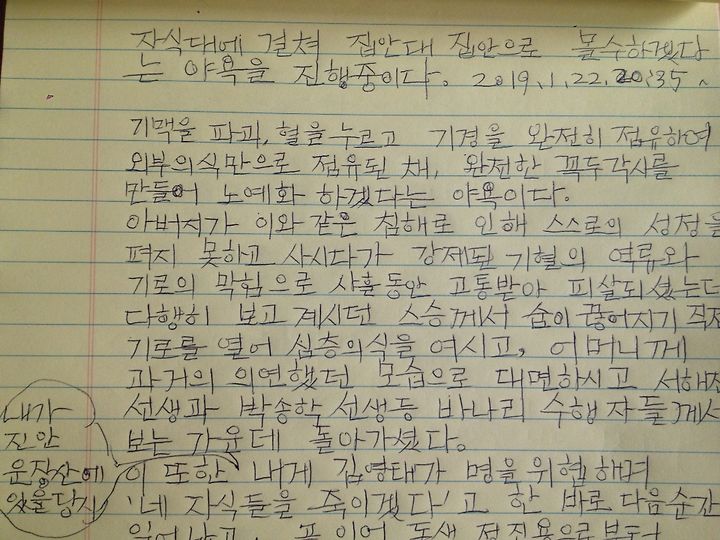 자식대에 걸쳐 집안대 집안으로 몰수하겠다
는 야욕을 진행중이다. 2019.1.22.20:35
기맥을 파괴, 혈을 누르고 기경을 완전히 점유하여
외부의식만으로 점유된 채, 완전한 꼭두각시를
만들어 노예화 하겠다는 야욕이다.
아버지가 이와 같은 침해로 인해 스스로의 성정을
펴지 못하고 사시다가 강제된 기혈의 역류와
기로의 막힘으로 사흘동안 고통받아 피살되셨는데
다행히 보고 계시던 스승께서 숨이 끊어지기 직전
기로를 열어 심층의식을 여시고, 어머니께
과거의 의연했던 모습으로 대면하시고 서해진
선생과 박송학 선생등 바나리 수행자들께서
보는 가운데 돌아가셨다.
내가
진안
운장산에
있을당시
이 또한 내게 김영태가 명을 위협하며
'네 자식들을 죽이겠다'고 한 바로 다음순간
일어났고, 곧 이어 동생 정진용으로부터